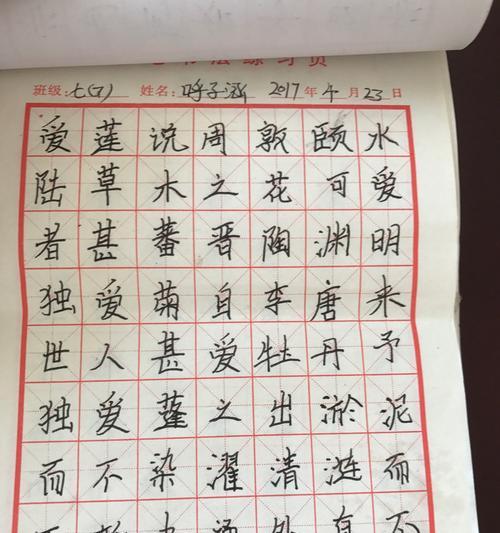 书法练习页
班级：七(7) 姓名：呼子涵 2017年4月23日
爱莲说周敦颐水
陆草木之花可爱
者甚蕃晋陶渊明
独爱菊自李唐来
世人甚爱牡丹予
独爱莲之出淤泥
而不染濯清涟而
不